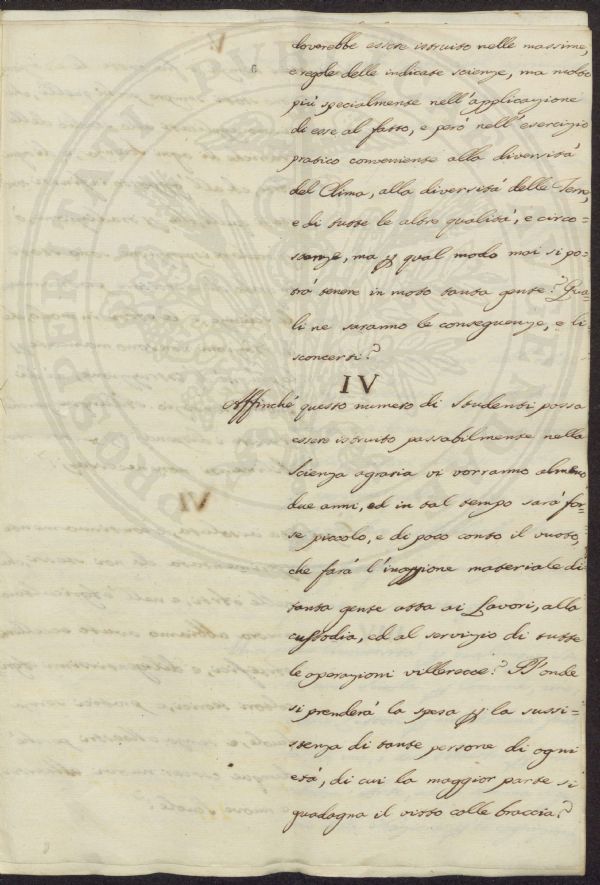 doverebbe essere istruito nelle massime,
e regole delle indicate scienze, ma molto
più specialmente nell'applicazione
di esse al fatto, e però nell'esercizio
pratico conveniente alla diversità
del Clima, alla diversità delle Terre,
e di tutte le altre qualità, e circo=
stanze, ma p qual modo mai si po=
trà tenere in moto tanta gente? Qua=
li ne saranno le conseguenze, e li
sconcerti?
IV
Affinché questo numero di Studenti possa
essere istruito passabilmente nella
Scienza agraria vi vorranno almeno
due anni, ed in tal tempo sarà for=
se piccolo, e di poco conto il vuoto,
che farà l'inazione materiale di
tanta gente atta ai Lavori, alla
custodia, ed al servizio di tutte
le operazioni villerecce? D'onde
si prenderà la spesa p la sussi=
stenza di tante persone di ogni
età, di cui la maggior parte si
guadagna il vitto colle braccia?